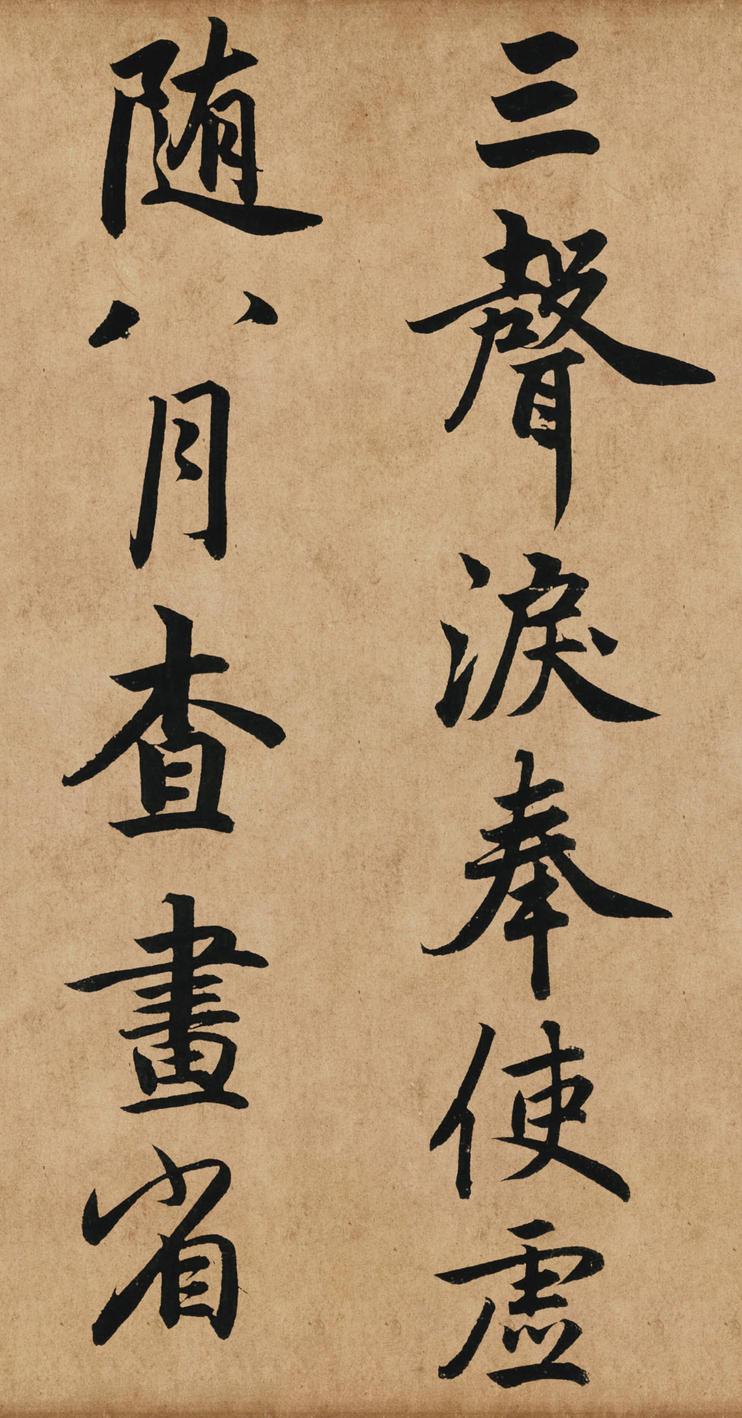 三聲淚奉使虛
随八月查畫省